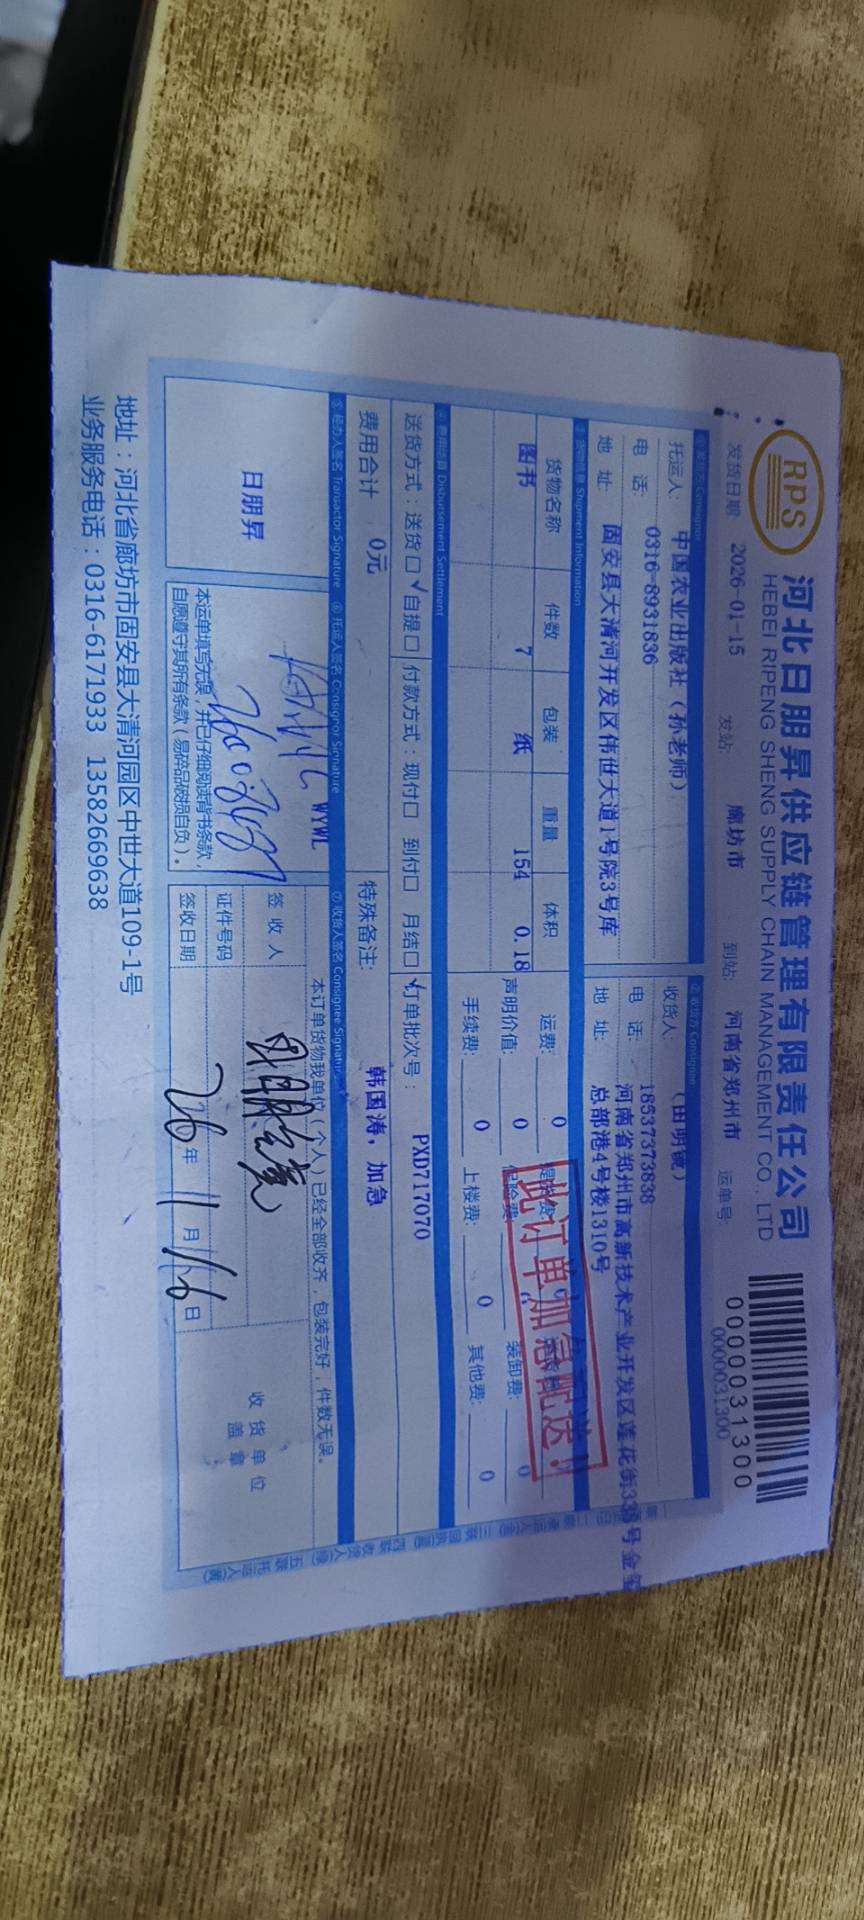 RPS
河北日朋昇供应链管理有限责任公司
HEBEI RIPENG SHENG SUPPLY CHAIN MANAGEMENT CO., LTD
0000031300
发货日期 2026-01-15 发站: 廊坊市 到站: 河南省郑州市 运单号: 0000031300
①发货方 Consignor ②收货方 Consignee
托运人: 中国农业出版社(孙老师) 收货人: (田明镜)
电 话: 0316-8931836 电 话: 18537373838
地 址: 固安县大清河开发区伟世大道1号院3号库 地 址: 河南省郑州市高新技术产业开发区莲花街338号金玺
总部港4号楼1310号
Shipment Information
货物名称 件数 包装 重量 体积 运费: 0
图书 7 纸 154 0.18 声明价值: 0 保险费: 装卸费: 0
手续费: 0 上楼费: 0 其他费: 0
此订单加急配送!
Disbursement Settlement
送货方式: 送货□ ✓自提□ 付款方式: 现付□ 到付□ 月结□ ✓订单批次号: PXD717070
费用合计 0元 特殊备注: 韩国涛, 加急
⑤经办人签名 Transactor Signature ⑥托运人签名 Consignor Signature ⑦收货人签名 Consignee Signature
日朋昇
WYWL
本运单填写无误,并已仔细阅读背书条款,
自愿遵守其所有条款(易碎品破损自负)。
本订单货物我单位(个人)已经全部收齐,包装完好,件数无误。
签 收 人
证件号码
签收日期 26年 1月 16日
收货单位
盖 章
地址:河北省廊坊市固安县大清河园区中世大道109-1号
业务服务电话:0316-6171933 13582669638